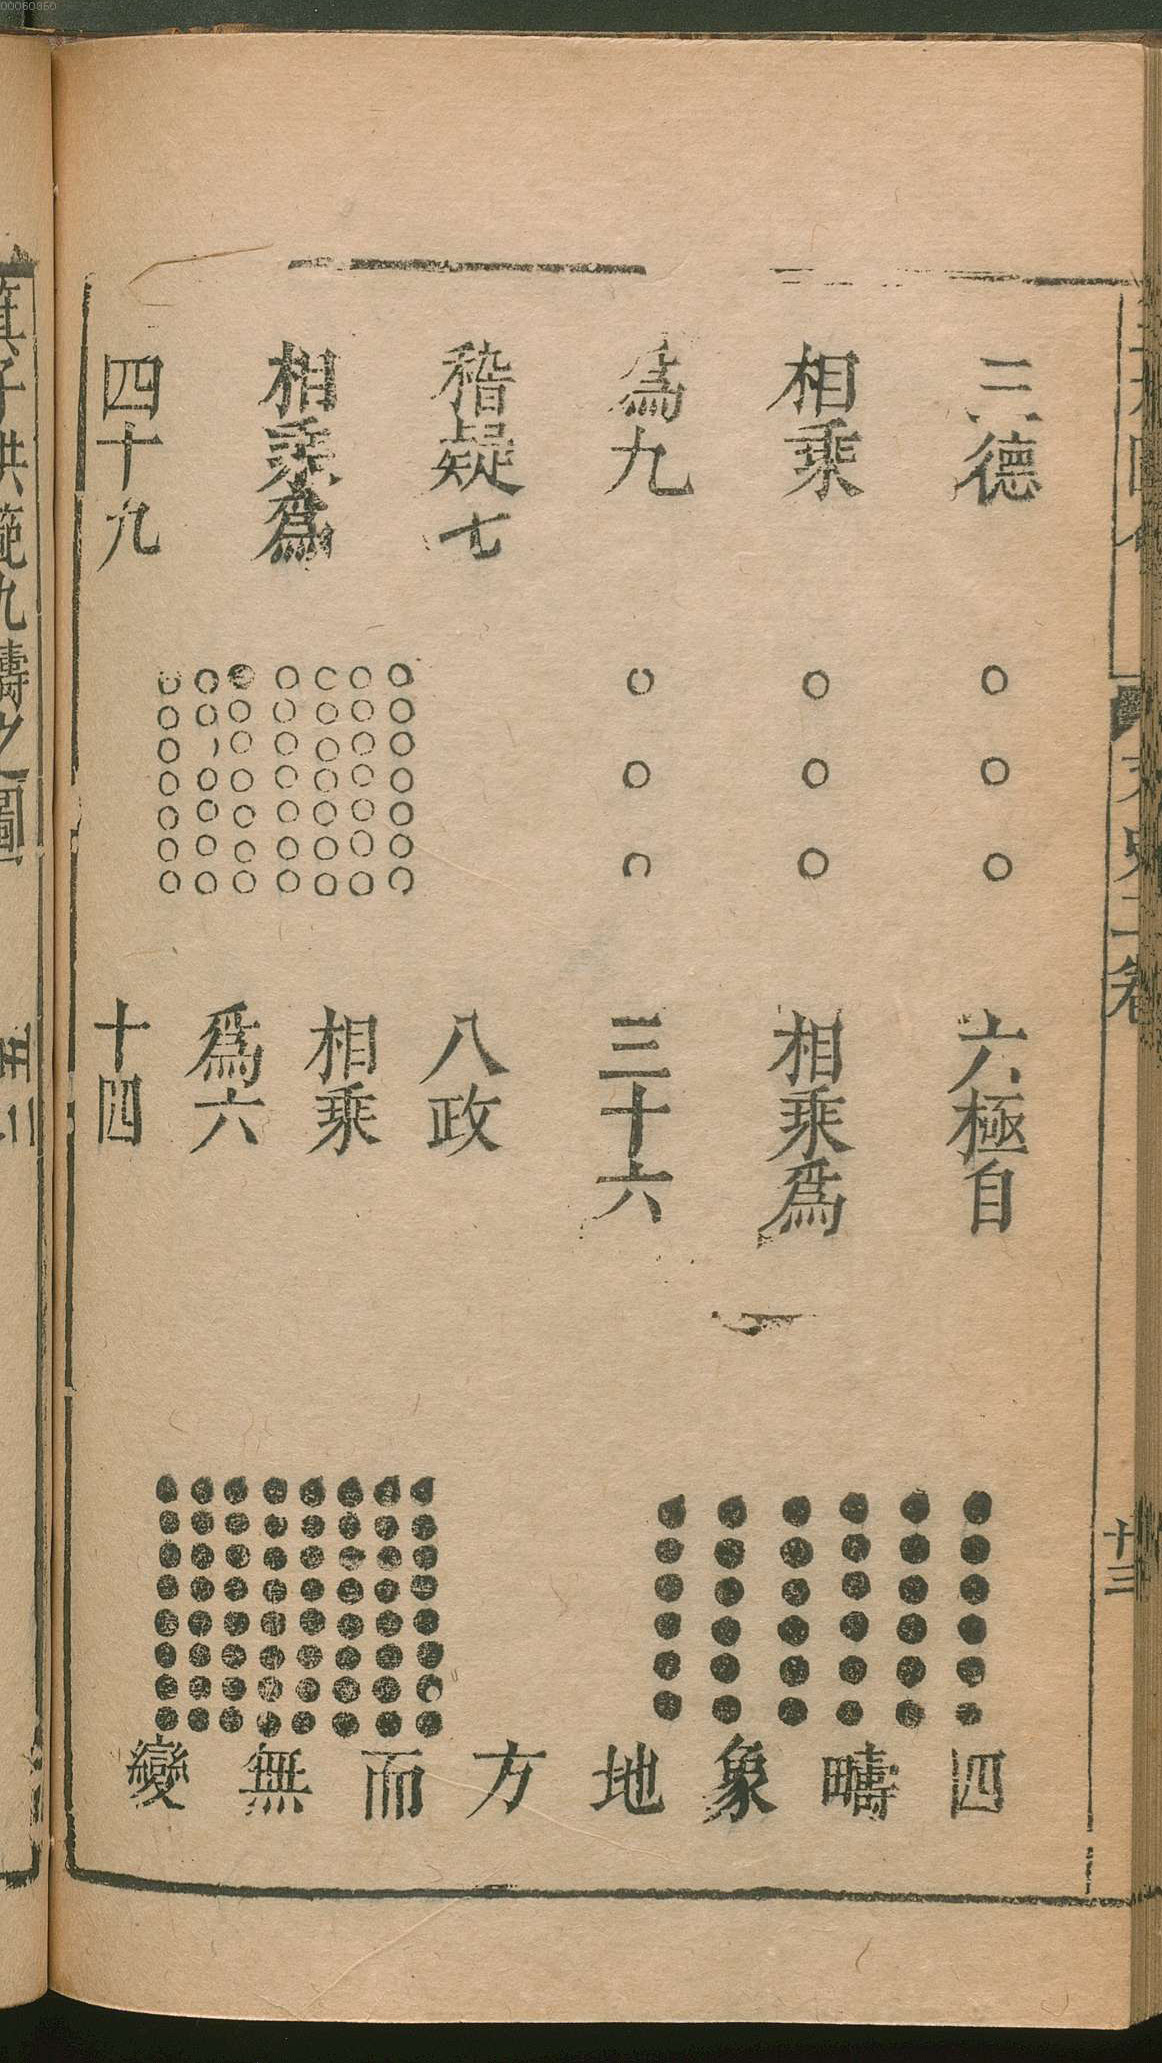 三德
相乘
爲九
稽疑七
相乘爲
四十九
六極自
相乘爲
三十六
八政
相乘
爲六
十四
四疇象地方而無變
卷
十三
箕子洪範九疇之圖
00060850